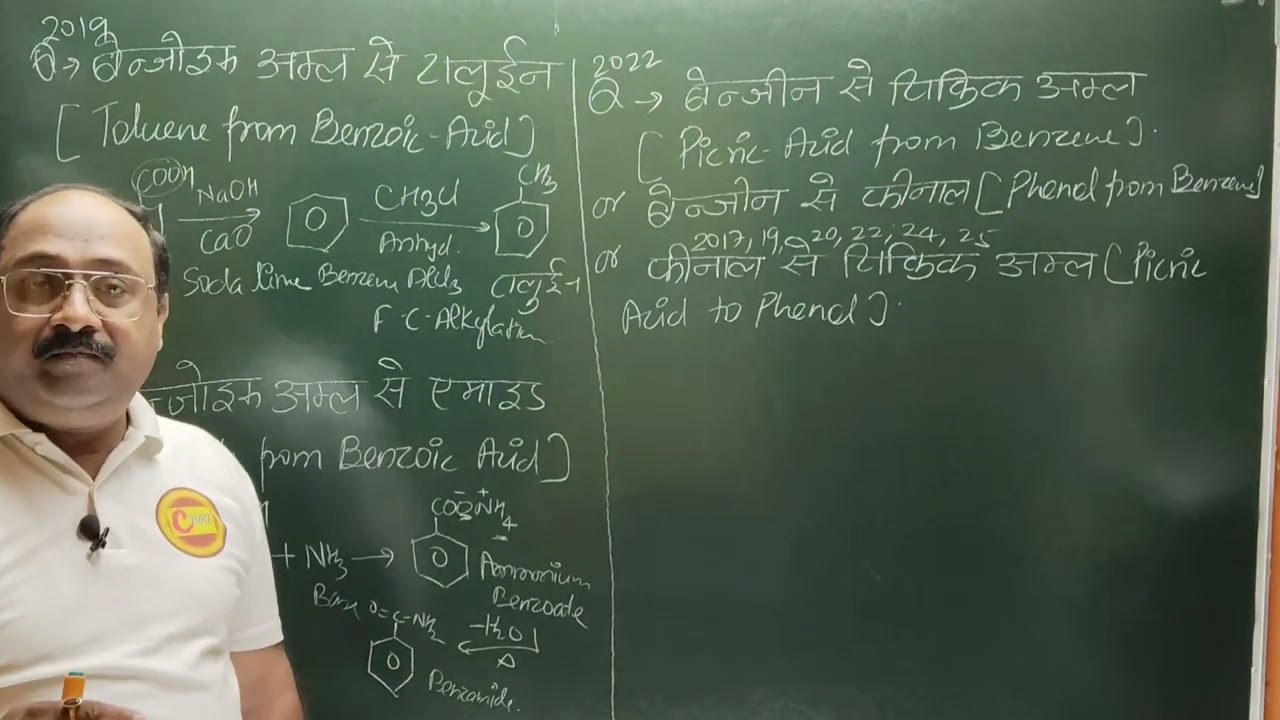 2019
Q → बेन्जोइक अम्ल से टालूईन
[ Toluene from Benzoic-Acid ]
COOH NaOH CaO CH3Cl Anhyd. CH3
Soda lime Benzene AlCl3 टालूईन
F-C-Alkylation
न्जोइक अम्ल से एमाइड
from Benzoic Acid ]
COO⁻N⁺H4
+ NH3 → Ammonium
Base Benzoate
O=C-NH2 -H2O Δ
Benzamide.
2022
Q → बेन्जीन से पिक्रिक अम्ल
[ Picric-Acid from Benzene ].
or बेन्जीन से फीनाल [ Phenol from Benzene ]
2017, 19, 20, 22, 24, 25
or फीनाल से पिक्रिक अम्ल [ Picric
Acid to Phenol ].